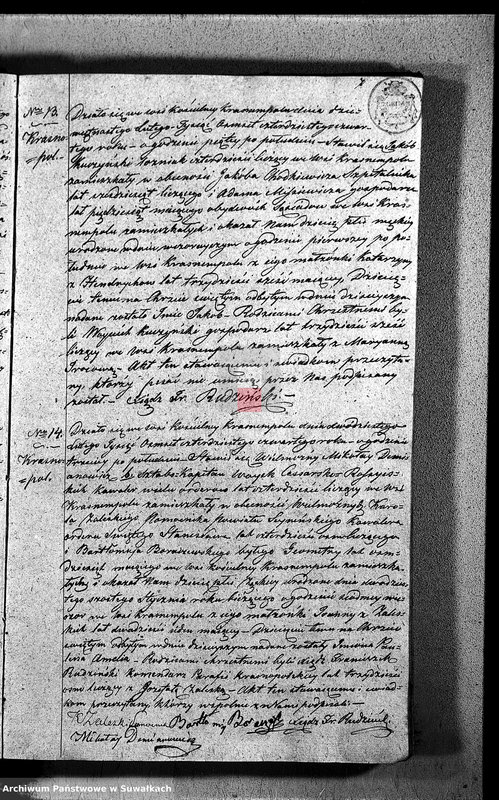 No 13.
Krasno-
=pol.
Działo się we wsi Kościelny Krasnempolu dnia dzie-
więtnastego Lutego Tysiąc Osmset czterdziestego czwar-
tego roku o godzinie piątej po południu Stawił się Jakób
Kuczyński lat czterdzieści liczący we wsi Krasnempolu
zamieszkały w obecności Jakóba
lat sześćdziesiąt liczącego i Adama gospodarza
lat pięćdziesiąt mającego obydwóch we wsi Kras-
nempolu zamieszkałych i okazał Nam dziecię płci męskiej
urodzone w dniu wczorajszym o godzinie pierwszej po po-
łudniu we wsi Krasnempolu z jego małżonki Katarzyny
z lat trzydzieści sześć mającej. Dziecię-
ciu temu na Chrzcie świętym odbytym w dniu dzisiejszym
nadane zostało Imię Jakób. Rodzicami Chrzestnemi by-
li Woyciech Kuczyński gospodarz lat trzydzieści sześć
liczący we wsi Krasnempolu zamieszkały z Maryanną
Akt ten stawającemu i świadkom przeczyta-
ny którzy pisać nie umieją przez Nas podpisany
został. Xiądz Fr. Rudziński
No 14.
Krasno-
=pol.
Działo się we wsi Kościelny Krasnempolu dnia dwudziestego
Lutego Tysiąc Osmset czterdziestego czwartego roku o godzinie
trzeciej po południu. Stawił się Wielmożny Mikołay Demi-
anowicz Sztabs-Kapitan Woysk Cesarsko Rossyis-
kich Kawaler wielu orderów lat czterdzieści liczący we wsi
Krasnempolu zamieszkały w obecności Wielmożnych Karo-
la Zaleskiego Pomocnika Powiatu Seyneńskiego Kawalera
orderu Świętego Stanisława lat czterdzieści
i Bartłomieja byłego Geometry lat
mającego we wsi kościelny Krasnempolu zamieszka-
łych i okazał Nam dziecię płci żeńskiej urodzone dnia dwudzies-
tego szóstego Stycznia roku bieżącego o godzinie siódmej wie-
czór we wsi Krasnempolu z jego małżonki Joanny z Zales-
kich lat dwadzieścia siedm mającej. Dziecięciu temu na Chrzcie
świętym odbytym w dniu dzisiejszym nadane zostały Imiona Pau-
lina Amelia. Rodzicami chrzestnemi byli Xiądz Franciszek
Rudziński Komendarz Parafii Krasnopolskiej lat trzydzieści
liczący z Józefatą Zaleską. Akt ten stawającemu i świad-
kom przeczytany którzy wspólnie z Nami podpisali
K. Zaleski Xiądz Fr. Rudziński
Mikołay Demianowicz
Archiwum Państwowe w Suwałkach